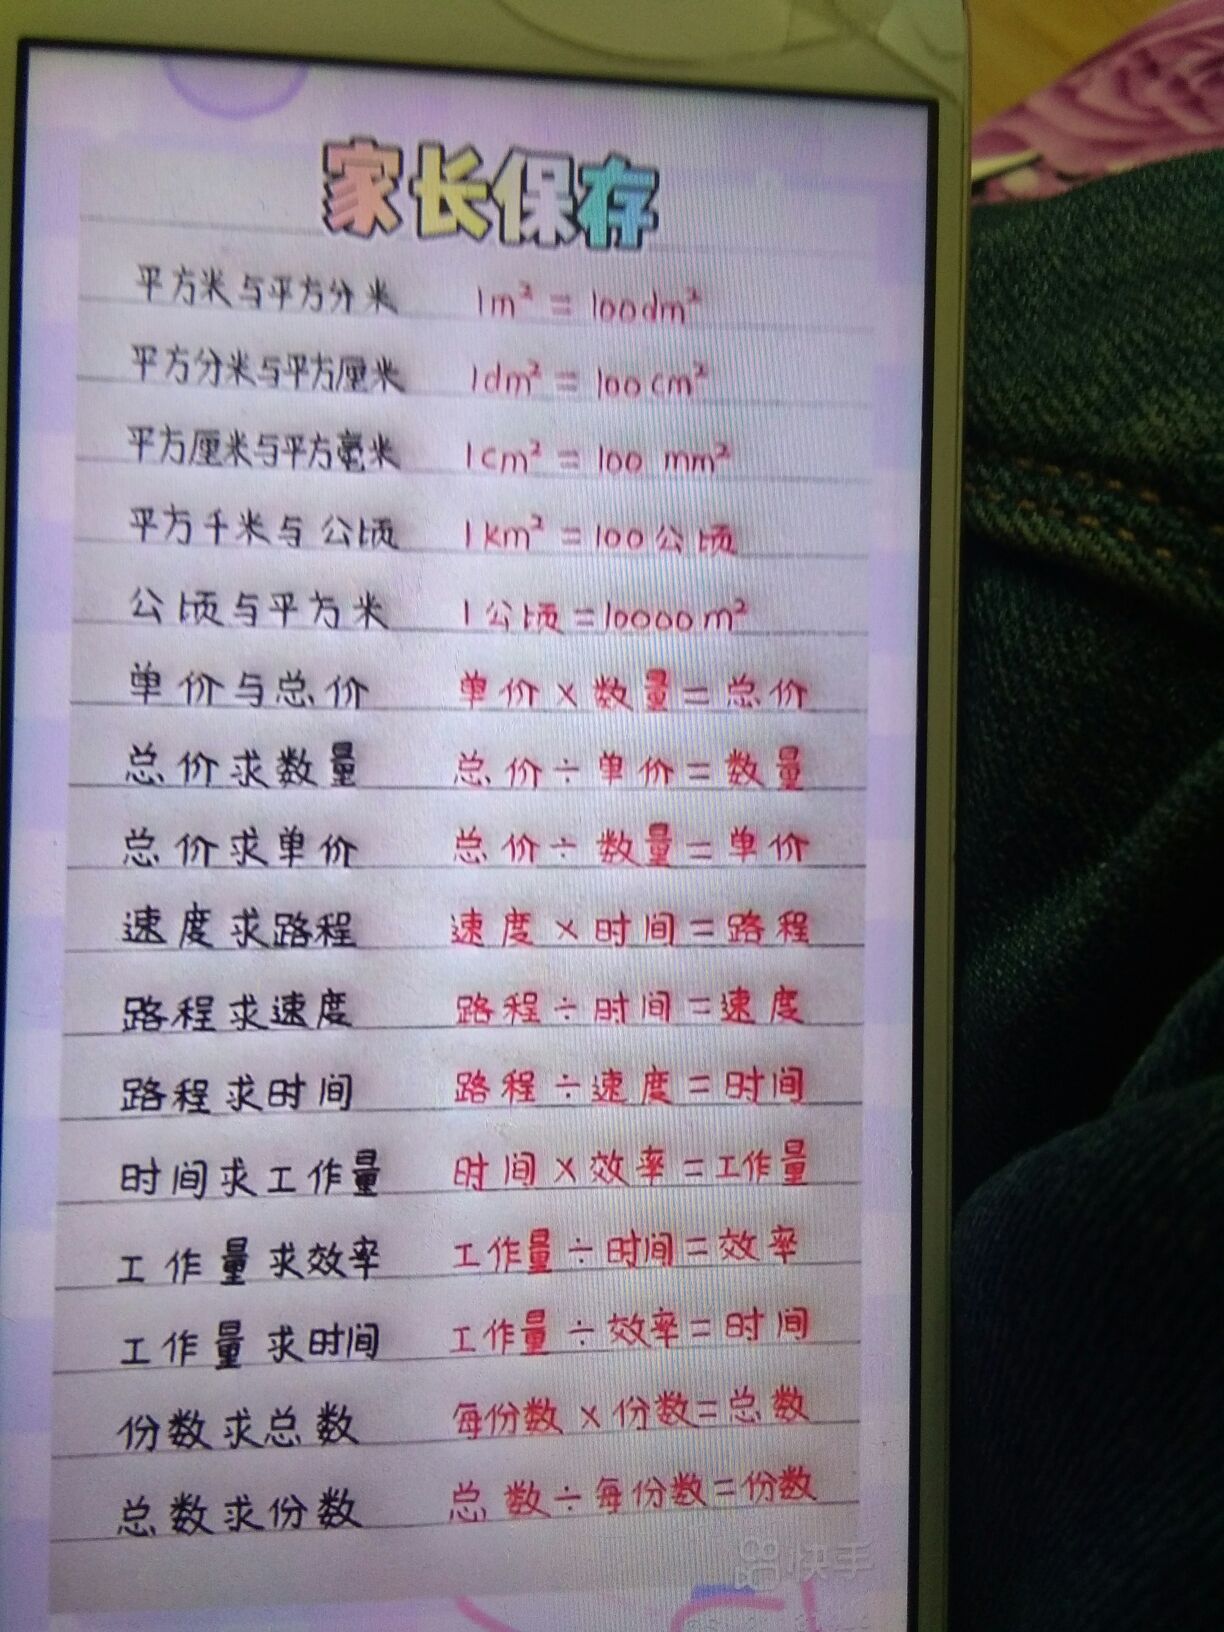 家长保存
平方米与平方分米 1m² = 100dm²
平方分米与平方厘米 1dm² = 100cm²
平方厘米与平方毫米 1cm² = 100 mm²
平方千米与公顷 1km² = 100公顷
公顷与平方米 1公顷=10000m²
单价与总价 单价×数量=总价
总价求数量 总价÷单价=数量
总价求单价 总价÷数量=单价
速度求路程 速度×时间=路程
路程求速度 路程÷时间=速度
路程求时间 路程÷速度=时间
时间求工作量 时间×效率=工作量
工作量求效率 工作量÷时间=效率
工作量求时间 工作量÷效率=时间
份数求总数 每份数×份数=总数
总数求份数 总数÷每份数=份数
快手